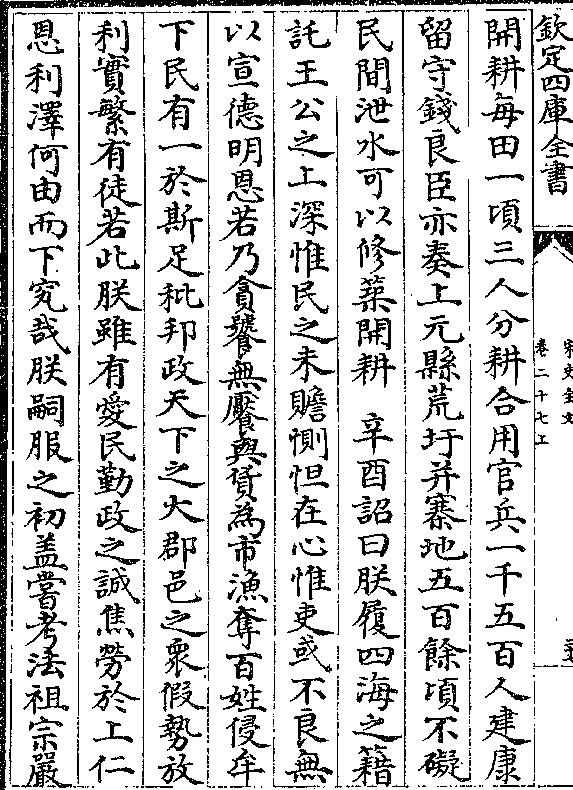 欽定四庫全書
宋史全文
卷二十七上
開耕每田一頃三人分耕合用官兵一千五百人建康
留守錢良臣亦奏上元縣荒圩并寨地五百餘頃不礙
民間泄水可以修築開耕　辛酉詔曰朕履四海之籍
託王公之上深惟民之未贍惻怛在心惟吏或不良無
以宣德明恩若乃貪饕無饜與貨為市漁奪百姓侵牟
下民有一於斯足秕邦政天下之大郡邑之衆假勢放
利實繁有徒若此朕雖有愛民勤政之誠焦勞於上仁
恩利澤何由而下究哉朕嗣服之初盖嘗考法祖宗嚴